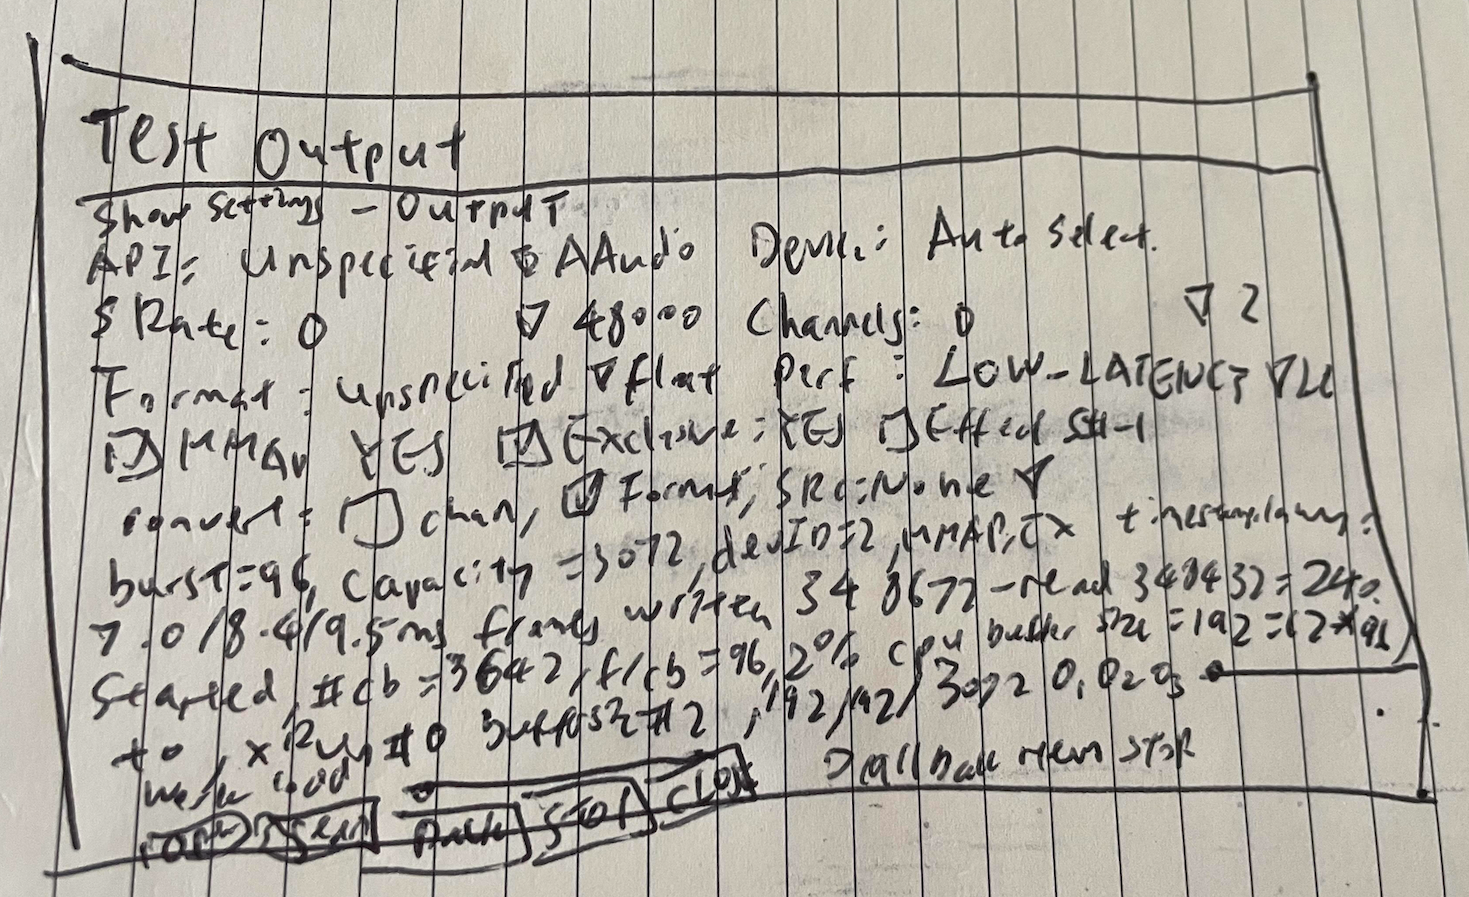 Test Output
Show Settings - OUTPUT
API: Unspecified ▽ AAudio Device: Auto select.
S Rate: 0 ▽ 48000 Channels: 0 ▽ 2
Format: unspecified ▽ float Perf: LOW-LATENCY ▽ LL
MMAP YES ☑ Exclusive: YES ☐ Effect SH-1
convert: ☐ chan, ☑ Format, SRC: None ▽
burst=96, capacity=3072, devID=2, MMAP, EX
7.0/8.4/9.5ms frames written 348672-read 348432=240
Started, #cb=3642, f/cb=96, 2% cpu buffer size=192=(2*96)
to, xRun#0 #2, 192/192/3072 0,0203
workload callback return STOP
OPEN START PAUSE STOP CLOSE